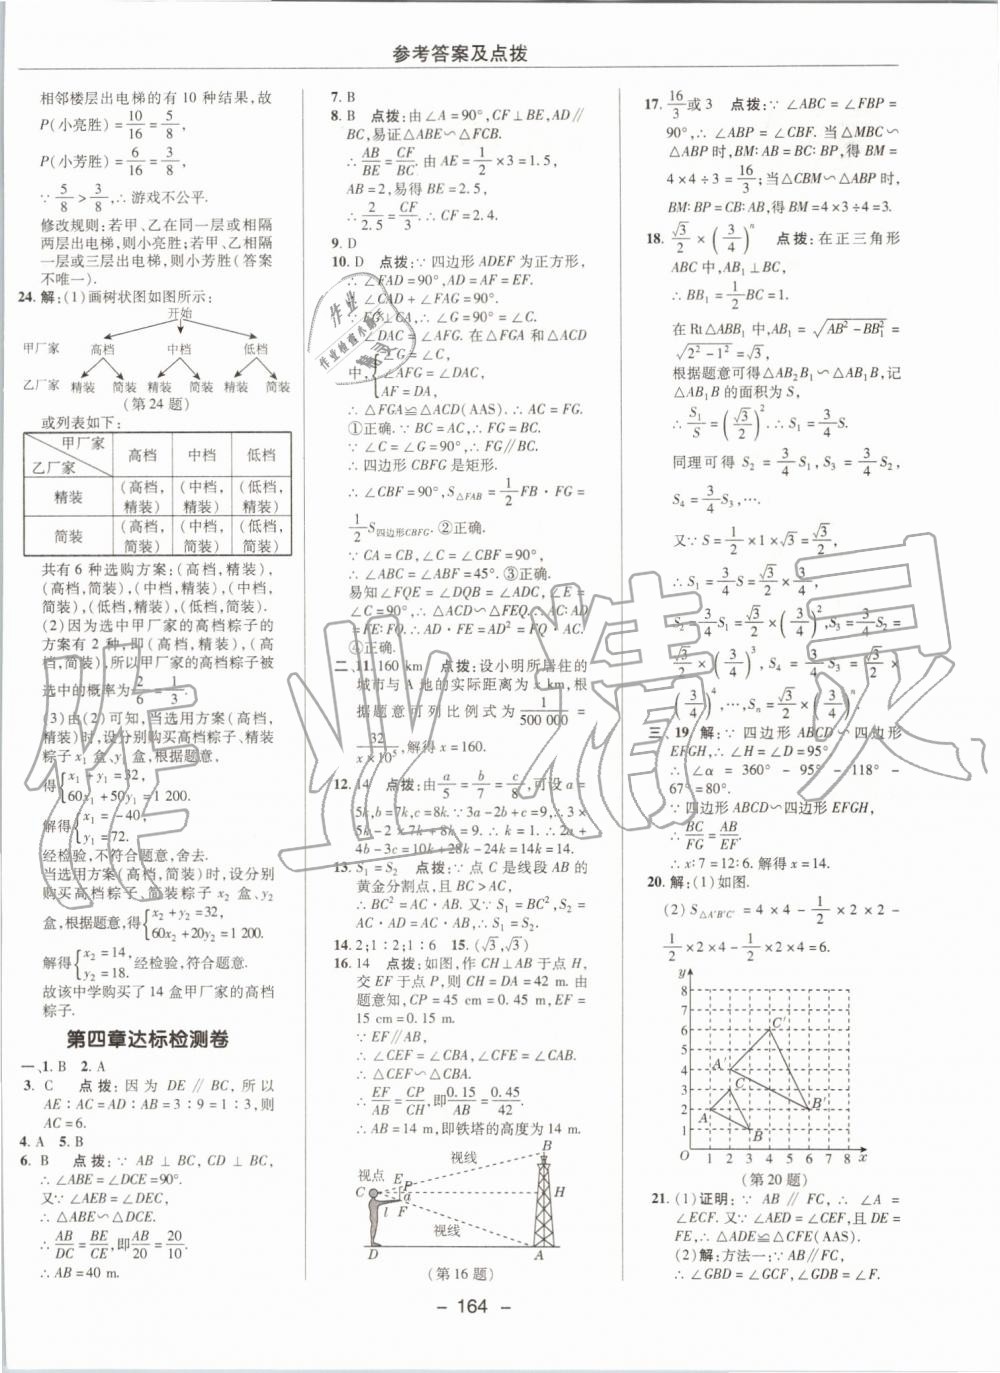 参考答案及点拨
相邻楼层出电梯的有 10 种结果,故
P(小亮胜) = 10/16 = 5/8,
P(小芳胜) = 6/16 = 3/8,
∵ 5/8 > 3/8,∴ 游戏不公平.
修改规则:若甲、乙在同一层或相隔
两层出电梯,则小亮胜;若甲、乙相隔
一层或三层出电梯,则小芳胜(答案
不唯一).
24. 解:(1)画树状图如图所示:
开始
甲厂家 高档 中档 低档
乙厂家 精装 简装 精装 简装 精装 简装
(第 24 题)
或列表如下:
甲厂家 高档 中档 低档
乙厂家
精装 (高档,精装) (中档,精装) (低档,精装)
简装 (高档,简装) (中档,简装) (低档,简装)
共有 6 种选购方案:(高档,精装),
(高档,简装),(中档,精装),(中档,
简装),(低档,精装),(低档,简装).
(2)因为选中甲厂家的高档粽子的
方案有 2 种,即(高档,精装),(高
档,简装),所以甲厂家的高档粽子被
选中的概率为 2/6 = 1/3.
(3)由(2)可知,当选用方案(高档,
精装)时,设分别购买高档粽子、精装
粽子 x₁ 盒、y₁ 盒,根据题意,
得{x₁ + y₁ = 32, 60x₁ + 50y₁ = 1 200.
解得{x₁ = −40, y₁ = 72.
经检验,不符合题意,舍去.
当选用方案(高档,简装)时,设分别
购买高档粽子、简装粽子 x₂ 盒、y₂
盒,根据题意,得{x₂ + y₂ = 32, 60x₂ + 20y₂ = 1 200.
解得{x₂ = 14, y₂ = 18. 经检验,符合题意.
故该中学购买了 14 盒甲厂家的高档
粽子.
第四章达标检测卷
一、1. B 2. A
3. C 点拨:因为 DE ∥ BC, 所以
AE : AC = AD : AB = 3 : 9 = 1 : 3,则
AC = 6.
4. A 5. B
6. B 点拨:∵ AB ⊥ BC, CD ⊥ BC,
∴ ∠ABE = ∠DCE = 90°.
又∵ ∠AEB = ∠DEC,
∴ △ABE ∽ △DCE.
∴ AB/DC = BE/CE,即 AB/20 = 20/10.
∴ AB = 40 m.
7. B
8. B 点拨:由 ∠A = 90°, CF ⊥ BE, AD ∥
BC,易证 △ABE ∽ △FCB.
∴ AB/BE = CF/BC. 由 AE = 1/2 × 3 = 1.5,
AB = 2,易得 BE = 2.5,
∴ 2/2.5 = CF/3. ∴ CF = 2.4.
9. D
10. D 点拨:∵ 四边形 ADEF 为正方形,
∴ ∠FAD = 90°, AD = AF = EF.
∴ ∠CAD + ∠FAG = 90°.
∵ FG ⊥ CA,
∠DAC = ∠AFG. 在 △FGA 和 △ACD
中,{∠G = ∠C, ∠AFG = ∠DAC, AF = DA,
∴ △FGA ≌ △ACD(AAS). ∴ AC = FG.
①正确. ∵ BC = AC, ∴ FG = BC.
∵ ∠C = ∠G = 90°, ∴ FG ∥ BC.
∴ 四边形 CBFG 是矩形.
∴ ∠CBF = 90°, S△FAB = 1/2 FB · FG =
1/2 S四边形CBFG. ②正确.
∵ CA = CB, ∠C = ∠CBF = 90°,
∴ ∠ABC = ∠ABF = 45°. ③正确.
易知 ∠FQE = ∠DQB = ∠ADC, ∠E =
∠C = 90°, ∴ △ACD ∽ △FEQ. ∴ AC : AD
= FE : FQ. ∴ AD · FE = AD² = FQ · AC.
④正确.
二、11. 160 km 点拨:设小明所居住的
城市与 A 地的实际距离为 x km,根
据题意可列比例式为 1/500 000 =
32/(x × 10⁵),解得 x = 160.
12. 14 点拨:由 a/5 = b/7 = c/8,可设 a =
5k, b = 7k, c = 8k. ∵ 3a − 2b + c = 9, ∴ 3 ×
5k − 2 × 7k + 8k = 9. ∴ k = 1. ∴ 2a +
4b − 3c = 10k + 28k − 24k = 14k = 14.
13. S₁ = S₂ 点拨:∵ 点 C 是线段 AB 的
黄金分割点,且 BC > AC,
∴ BC² = AC · AB. 又∵ S₁ = BC², S₂ =
AC · AD = AC · AB, ∴ S₁ = S₂.
14. 2; 1 : 2; 1 : 6 15. (√3, √3)
16. 14 点拨:如图,作 CH ⊥ AB 于点 H,
交 EF 于点 P,则 CH = DA = 42 m. 由
题意知, CP = 45 cm = 0.45 m, EF =
15 cm = 0.15 m.
∵ EF ∥ AB,
∴ ∠CEF = ∠CBA, ∠CFE = ∠CAB.
∴ △CEF ∽ △CBA.
∴ EF/AB = CP/CH,即 0.15/AB = 0.45/42.
∴ AB = 14 m,即铁塔的高度为 14 m.
视线 B
视点 E P
C a H
l F
视线
D A
(第 16 题)
17. 16/3 或 3 点拨:∵ ∠ABC = ∠FBP =
90°, ∴ ∠ABP = ∠CBF. 当 △MBC ∽
△ABP 时, BM : AB = BC : BP,得 BM =
4 × 4 ÷ 3 = 16/3;当 △CBM ∽ △ABP 时,
BM : BP = CB : AB,得 BM = 4 × 3 ÷ 4 = 3.
18. √3/2 × (3/4)ⁿ 点拨:在正三角形
ABC 中, AB₁ ⊥ BC,
∴ BB₁ = 1/2 BC = 1.
在 Rt△ABB₁ 中, AB₁ = √(AB² − BB₁²) =
√(2² − 1²) = √3,
根据题意可得 △AB₂B₁ ∽ △AB₁B,记
△AB₁B 的面积为 S,
∴ S₁/S = (√3/2)². ∴ S₁ = 3/4 S.
同理可得 S₂ = 3/4 S₁, S₃ = 3/4 S₂,
S₄ = 3/4 S₃, ⋯.
又∵ S = 1/2 × 1 × √3 = √3/2,
∴ S₁ = 3/4 S = √3/2 × 3/4,
S₂ = 3/4 S₁ = √3/2 × (3/4)², S₃ = 3/4 S₂ =
√3/2 × (3/4)³, S₄ = 3/4 S₃ =
√3/2 × (3/4)⁴, ⋯, Sₙ = √3/2 × (3/4)ⁿ.
三、19. 解:∵ 四边形 ABCD ∽ 四边形
EFGH, ∴ ∠H = ∠D = 95°.
∴ ∠α = 360° − 95° − 118° −
67° = 80°.
∵ 四边形 ABCD ∽ 四边形 EFGH,
∴ BC/FG = AB/EF.
∴ x : 7 = 12 : 6. 解得 x = 14.
20. 解:(1)如图.
(2) S△A′B′C′ = 4 × 4 − 1/2 × 2 × 2 −
1/2 × 2 × 4 − 1/2 × 2 × 4 = 6.
y
8
7
6 C′
5
4 A′
3 C
2 A B′
1 B
O 1 2 3 4 5 6 7 8 x
(第 20 题)
21. (1)证明:∵ AB ∥ FC, ∴ ∠A =
∠ECF. 又∵ ∠AED = ∠CEF,且 DE =
FE, ∴ △ADE ≌ △CFE(AAS).
(2)解:方法一:∵ AB ∥ FC,
∴ ∠GBD = ∠GCF, ∠GDB = ∠F.
- 164 -
作业精灵